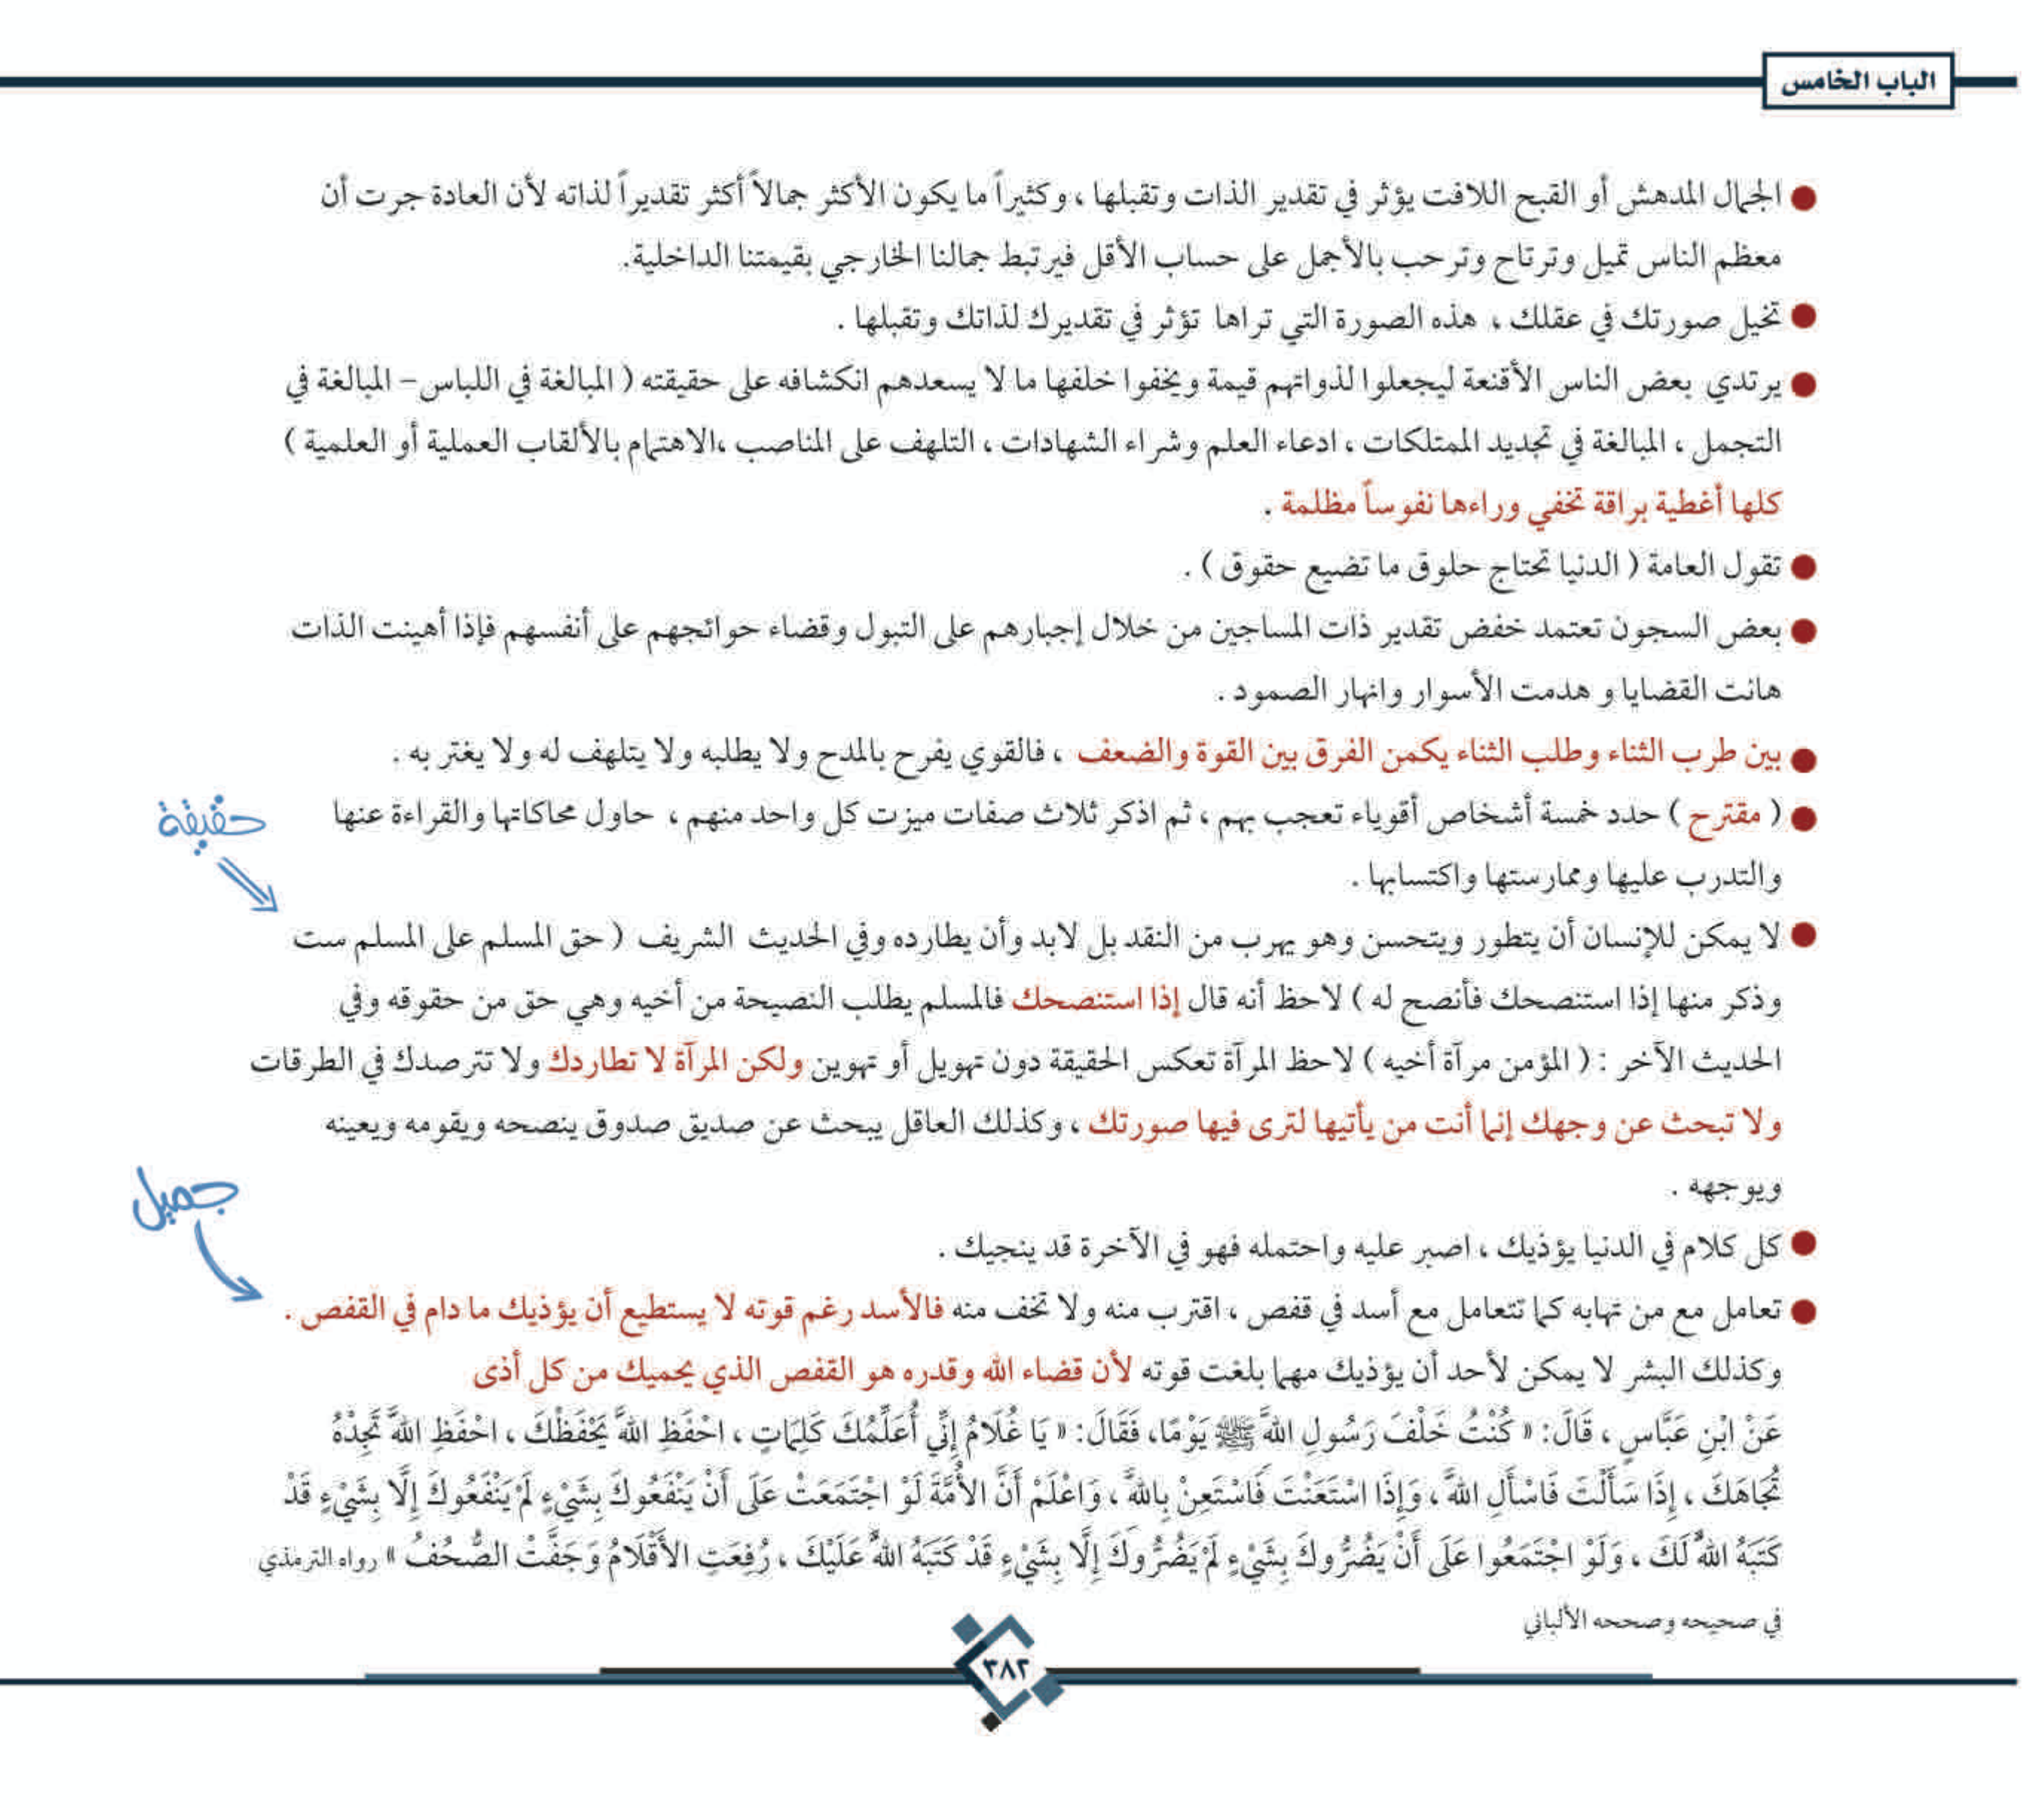 الباب الخامس
الجمال المدهش أو القبح اللافت يؤثر في تقدير الذات وتقبلها ، وكثيراً ما يكون الأكثر جمالاً أكثر تقديراً لذاته لأن العادة جرت أن
معظم الناس تميل وترتاح وترحب بالأجمل على حساب الأقل فيرتبط جمالنا الخارجي بقيمتنا الداخلية.
تخيل صورتك في عقلك ، هذه الصورة التي تراها تؤثر في تقديرك لذاتك وتقبلها .
يرتدي بعض الناس الأقنعة ليجعلوا لذواتهم قيمة ويخفوا خلفها ما لا يسعدهم انكشافه على حقيقته ( المبالغة في اللباس – المبالغة في
التجمل ، المبالغة في تجديد الممتلكات ، ادعاء العلم وشراء الشهادات ، التلهف على المناصب ،الاهتمام بالألقاب العملية أو العلمية )
كلها أغطية براقة تخفي وراءها نفوساً مظلمة .
تقول العامة ( الدنيا تحتاج حلوق ما تضيع حقوق ) .
بعض السجون تعتمد خفض تقدير ذات المساجين من خلال إجبارهم على التبول وقضاء حوائجهم على أنفسهم فإذا أهينت الذات
هانت القضايا و هدمت الأسوار وانهار الصمود .
بين طرب الثناء وطلب الثناء يكمن الفرق بين القوة والضعف ، فالقوي يفرح بالمدح ولا يطلبه ولا يتلهف له ولا يغتر به .
حقيقة
( مقترح ) حدد خمسة أشخاص أقوياء تعجب بهم ، ثم اذكر ثلاث صفات ميزت كل واحد منهم ، حاول محاكاتها والقراءة عنها
والتدرب عليها وممارستها واكتسابها .
لا يمكن للإنسان أن يتطور ويتحسن وهو يهرب من النقد بل لابد وأن يطارده وفي الحديث الشريف ( حق المسلم على المسلم ست
وذكر منها إذا استنصحك فأنصح له ) لاحظ أنه قال إذا استنصحك فالمسلم يطلب النصيحة من أخيه وهي حق من حقوقه وفي
الحديث الآخر : ( المؤمن مرآة أخيه ) لاحظ المرآة تعكس الحقيقة دون تهويل أو تهوين ولكن المرآة لا تطاردك ولا تترصدك في الطرقات
ولا تبحث عن وجهك إنما أنت من يأتيها لترى فيها صورتك ، وكذلك العاقل يبحث عن صديق صدوق ينصحه ويقومه ويعينه
ويوجهه .
جميل
كل كلام في الدنيا يؤذيك ، اصبر عليه واحتمله فهو في الآخرة قد ينجيك .
تعامل مع من تهابه كما تتعامل مع أسد في قفص ، اقترب منه ولا تخف منه فالأسد رغم قوته لا يستطيع أن يؤذيك ما دام في القفص .
وكذلك البشر لا يمكن لأحد أن يؤذيك مهما بلغت قوته لأن قضاء الله وقدره هو القفص الذي يحميك من كل أذى
عَنْ ابْنِ عَبَّاسٍ ، قَالَ: « كُنْتُ خَلْفَ رَسُولِ اللهَّ ﷺ يَوْمًا، فَقَالَ: « يَا غُلَامُ إِنِّي أُعَلِّمُكَ كَلِمَاتٍ ، احْفَظِ اللهَّ يَحْفَظْكَ ، احْفَظِ اللهَّ تَجِدْهُ
تُجَاهَكَ ، إِذَا سَأَلْتَ فَاسْأَلِ اللهَّ ، وَإِذَا اسْتَعَنْتَ فَاسْتَعِنْ بِاللهَّ ، وَاعْلَمْ أَنَّ الأُمَّةَ لَوْ اجْتَمَعَتْ عَلَى أَنْ يَنْفَعُوكَ بِشَيْءٍ لَمْ يَنْفَعُوكَ إِلَّا بِشَيْءٍ قَدْ
كَتَبَهُ اللهُ لَكَ ، وَلَوْ اجْتَمَعُوا عَلَى أَنْ يَضُرُّوكَ بِشَيْءٍ لَمْ يَضُرُّوكَ إِلَّا بِشَيْءٍ قَدْ كَتَبَهُ اللهُ عَلَيْكَ ، رُفِعَتِ الأَقْلَامُ وَجَفَّتْ الصُّحُفُ » رواه الترمذي
في صحيحه وصححه الألباني
٣٨٢